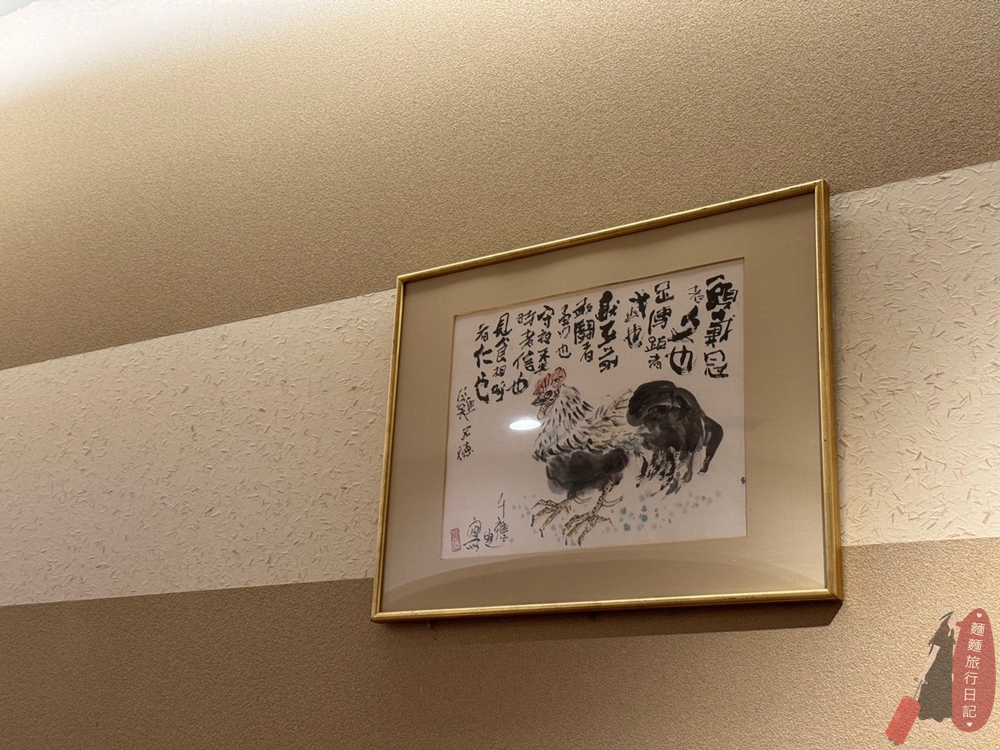 頭戴冠
者文也
足傅距者
武也
敵在前
敢鬪者
勇也
守夜不失
時者信也
見食相呼
者仁也
麵麵旅行日記